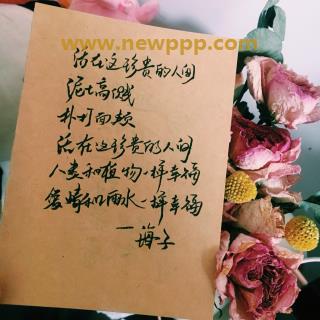 www.newppp.com
活在这珍贵的人间
泥土高溅
扑打面颊
活在这珍贵的人间
人类和植物一样幸福
爱情和雨水一样幸福
—海子